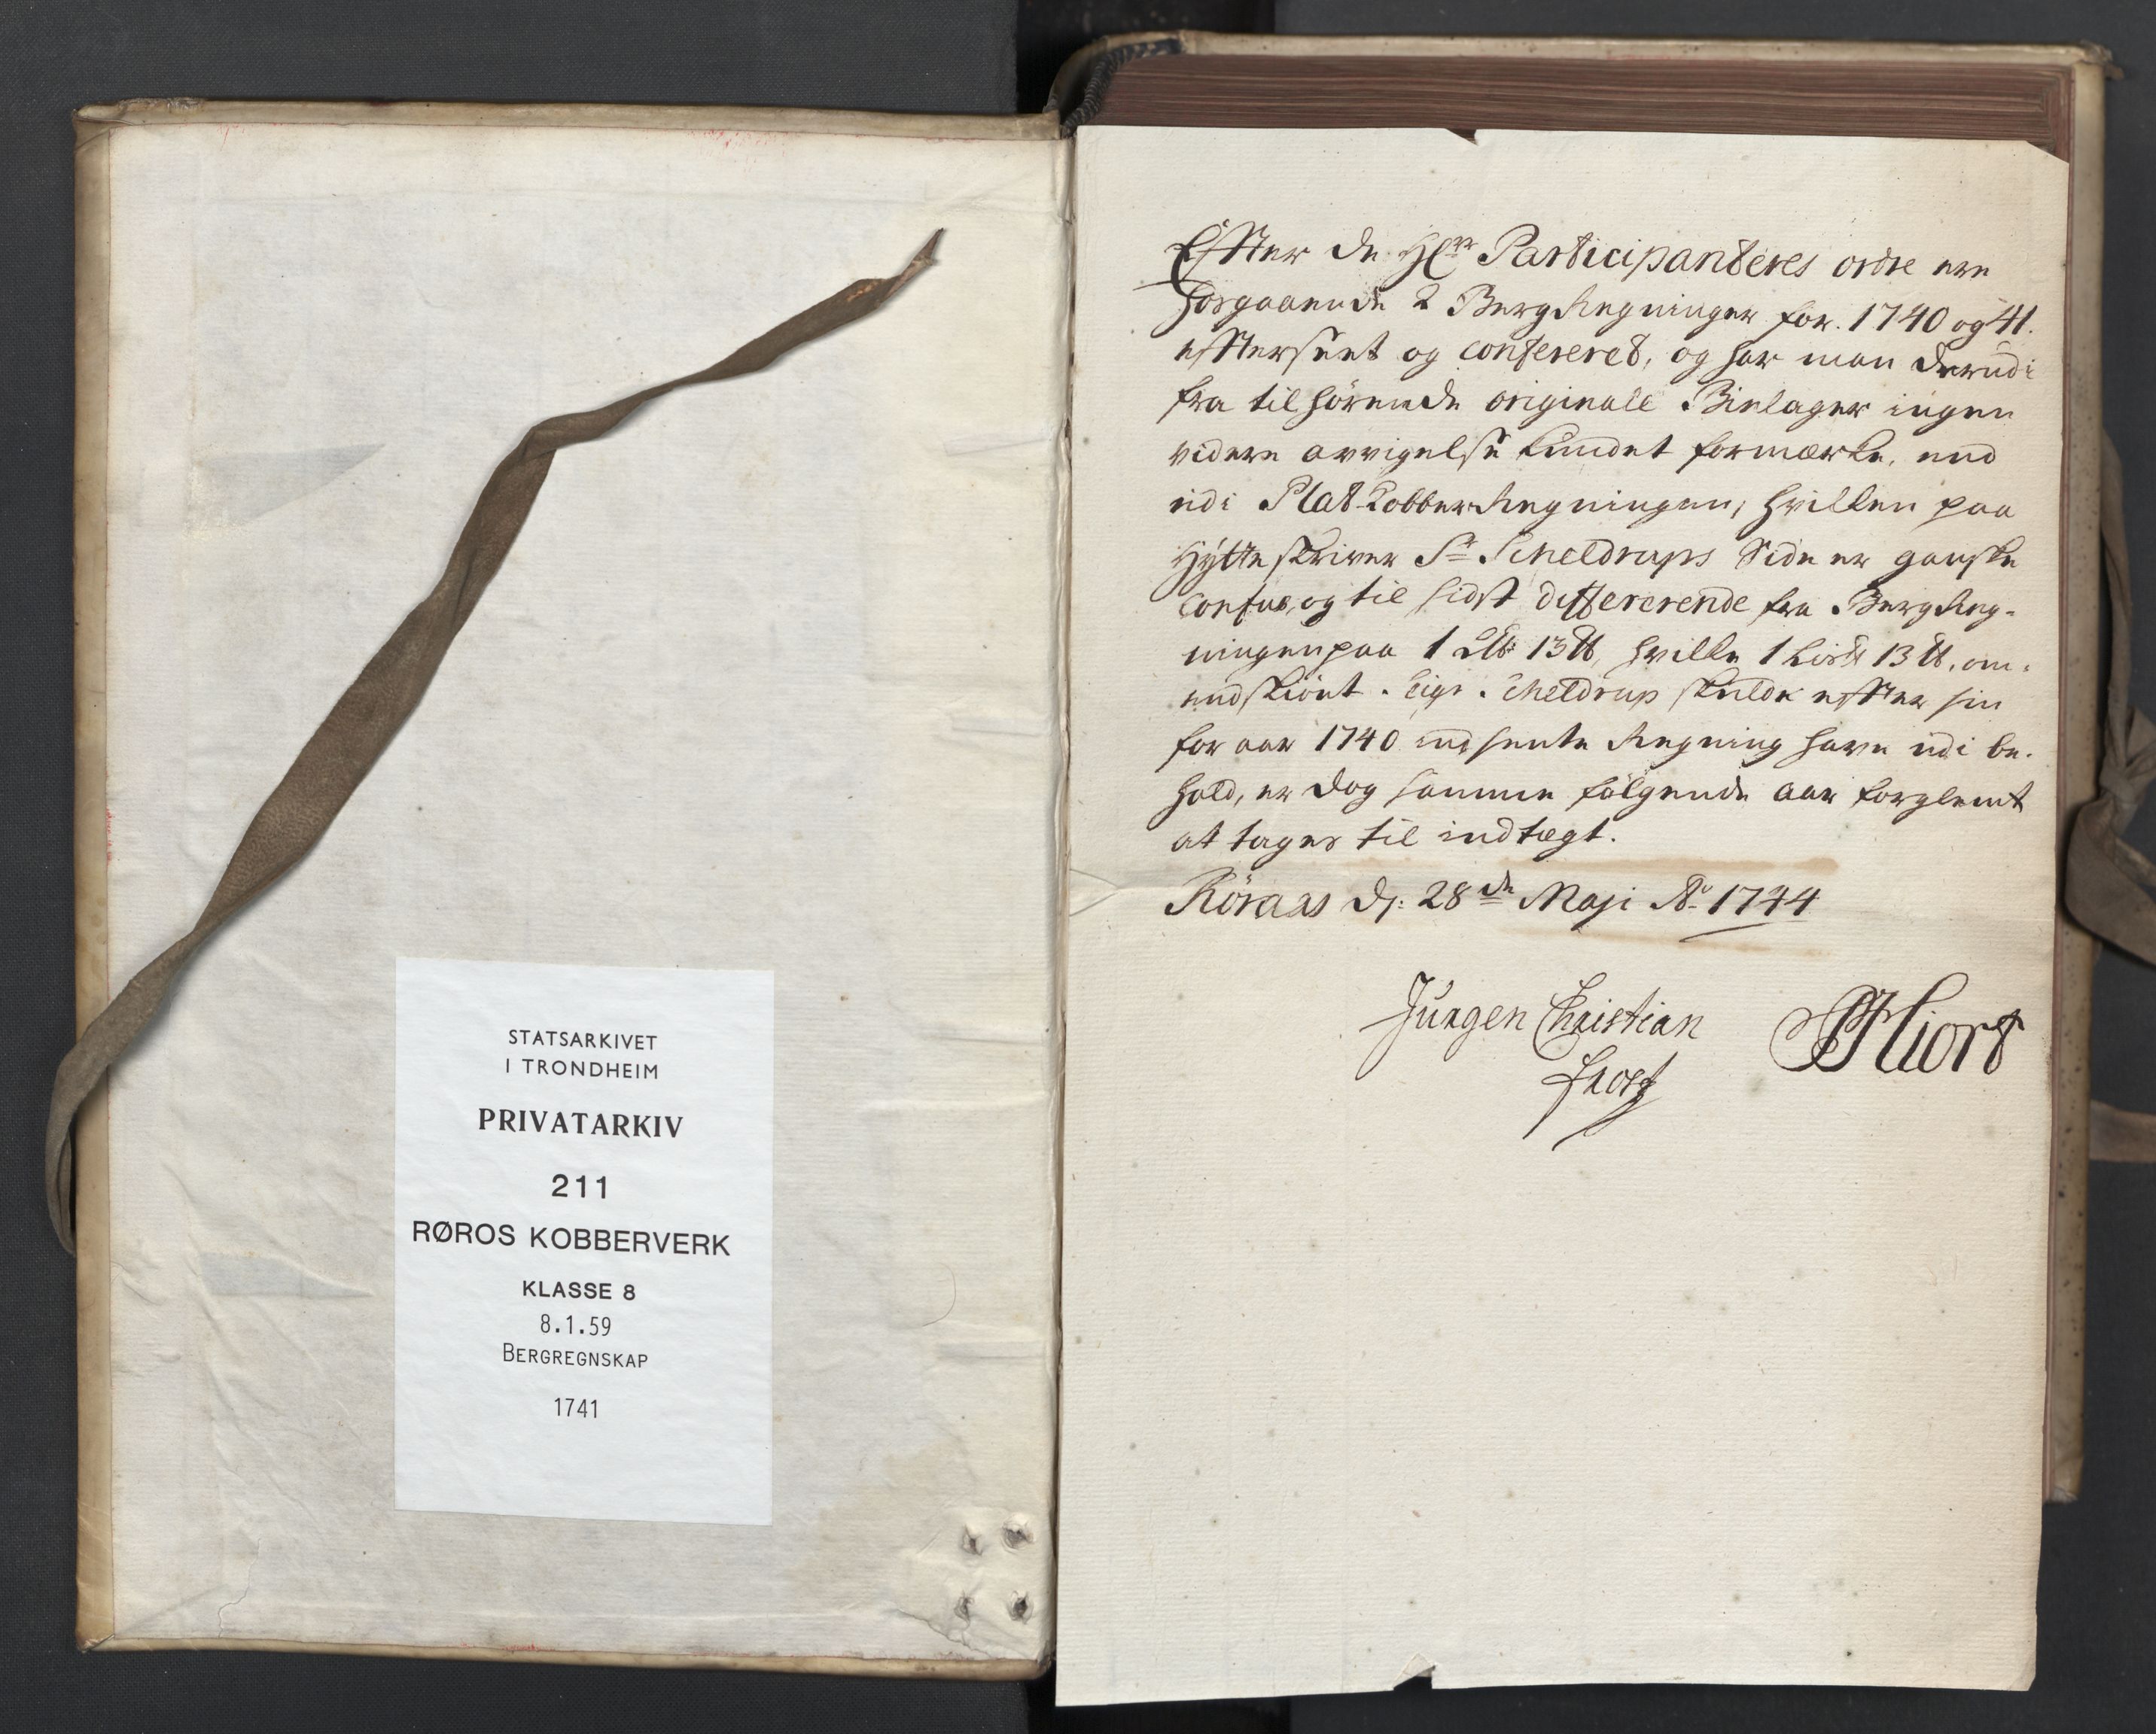 STATSARKIVET
I TRONDHEIM
PRIVATARKIV
211
RØROS KOBBERVERK
KLASSE 8
8.1.59
BERGREGNSKAP
1741
Effter de Hrr Participanteres ordre ere
forgaaende 2 Berg Regninger for. 1740 og 41.
effterseet og confereret, og har man derudi
fra tilhörende originale Bielager ingen
videre avvigelse kundet formærke, end
udi Plat-Kobber Regningen, hvilken paa
Hytteskriver Sr Scheldrups Side er ganske
confus, og til sidst differerende fra Berg Reg-
ningen paa 1 L℔ 13 ℔, hvilke 1 Lis℔ 13 ℔, om-
endskiönt Sigr. Scheldrup skulde effter sin
for aar 1740 indsente Regning have udi be-
hold, er dog samme fölgende aar forglemt
at tages til indtægt.
Röraas d: 28de Maji Ao 1744
Jürgen Christian
PHiort